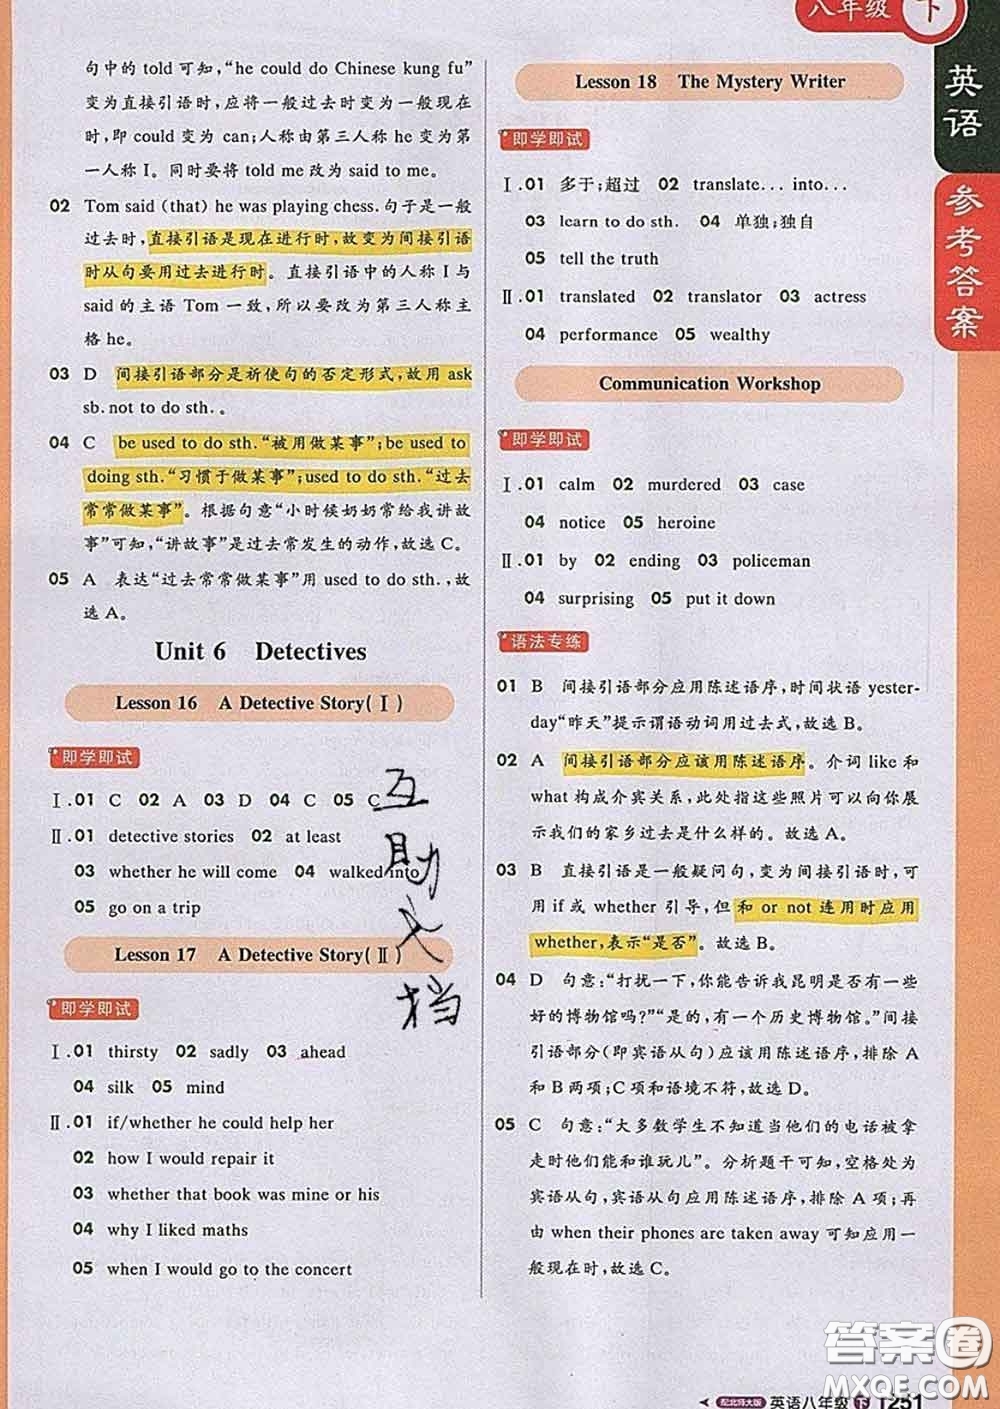 八年级 下
英语
参考答案
句中的 told 可知，“he could do Chinese kung fu”
变为直接引语时，应将一般过去时变为一般现在
时，即 could 变为 can；人称由第三人称 he 变为第
一人称 I。同时要将 told me 改为 said to me。
02 Tom said (that) he was playing chess. 句子是一般
过去时，直接引语是现在进行时，故变为间接引语
时从句要用过去进行时。直接引语中的人称 I 与
said 的主语 Tom 一致，所以要改为第三人称主
格 he。
03 D 间接引语部分是祈使句的否定形式，故用 ask
sb. not to do sth.。
04 C be used to do sth.“被用做某事”；be used to
doing sth.“习惯于做某事”；used to do sth.“过去
常常做某事”。根据句意“小时候奶奶常给我讲故
事”可知，“讲故事”是过去常发生的动作，故选 C。
05 A 表达“过去常常做某事”用 used to do sth.，故
选 A。
Unit 6 Detectives
Lesson 16 A Detective Story(Ⅰ)
即学即试
Ⅰ.01 C 02 A 03 D 04 C 05 C
Ⅱ.01 detective stories 02 at least
03 whether he will come 04 walked into
05 go on a trip
Lesson 17 A Detective Story(Ⅱ)
即学即试
Ⅰ.01 thirsty 02 sadly 03 ahead
04 silk 05 mind
Ⅱ.01 if/whether he could help her
02 how I would repair it
03 whether that book was mine or his
04 why I liked maths
05 when I would go to the concert
互
助
文
档
Lesson 18 The Mystery Writer
即学即试
Ⅰ.01 多于；超过 02 translate... into...
03 learn to do sth. 04 单独；独自
05 tell the truth
Ⅱ.01 translated 02 translator 03 actress
04 performance 05 wealthy
Communication Workshop
即学即试
Ⅰ.01 calm 02 murdered 03 case
04 notice 05 heroine
Ⅱ.01 by 02 ending 03 policeman
04 surprising 05 put it down
语法专练
01 B 间接引语部分应用陈述语序，时间状语 yester-
day“昨天”提示谓语动词用过去式，故选 B。
02 A 间接引语部分应该用陈述语序。介词 like 和
what 构成介宾关系，此处指这些照片可以向你展
示我们的家乡过去是什么样的。故选 A。
03 B 直接引语是一般疑问句，变为间接引语时，可
用 if 或 whether 引导，但和 or not 连用时应用
whether，表示“是否”。故选 B。
04 D 句意：“打扰一下，你能告诉我昆明是否有一些
好的博物馆吗？”“是的，有一个历史博物馆。”间接
引语部分（即宾语从句）应该用陈述语序，排除 A
和 B 两项；C 项和语境不符，故选 D。
05 C 句意：“大多数学生不知道当他们的电话被拿
走时他们能和谁玩儿”。分析题干可知，空格处为
宾语从句，宾语从句应用陈述语序，排除 A 项；再
由 when their phones are taken away 可知应用一
般现在时，故选 C。
答案圈
MXQE.COM
配北师大版 英语八年级 下 T251